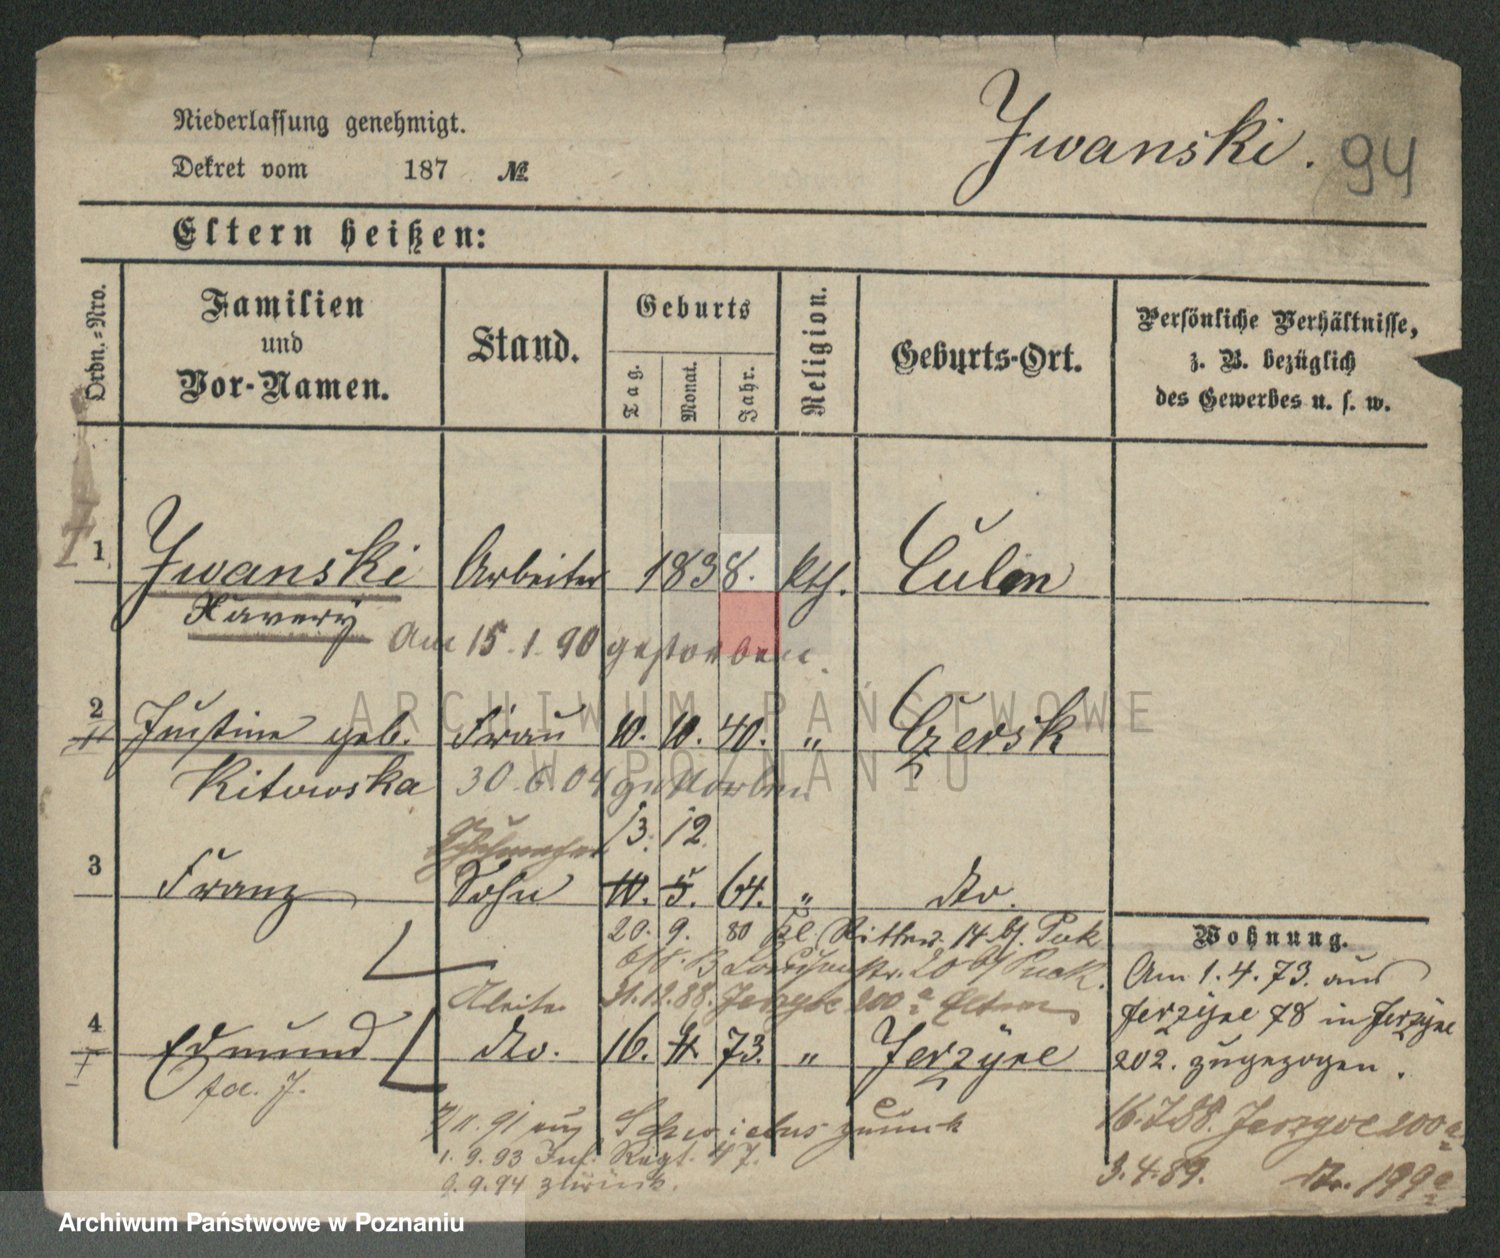 Niederlassung genehmigt.
Dekret vom 187 №
Iwanski. 94
Eltern heißen:
Ordn.=Nro.
Familien
und
Vor-Namen.
Stand.
Geburts
Tag.
Monat.
Jahr.
Religion.
Geburts-Ort.
Persönliche Verhältnisse,
z. B. bezüglich
des Gewerbes u. s. w.
1 Iwanski Arbeiter 1838. kth. Culm
Xavery Am 15.1.90 gestorben.
2 Justine geb. Frau 10. 10. 40. " Czersk
Kitowska 30.6.04 gestorben
13. 12.
3 Franz Sohn 10. 5. 64. " do.
20. 9. 80 Kl. Ritterstr. 14 b/ Puk
Wohnung.
Am 1.4.73. aus
31.12.88. Jerzyce 200a Eltern
Jerzyce 78 in Jerzyce
4 Edmund do. 16. 73. " Jerzyce
202. zugezogen.
91 aus Schwiebus zurück
16.7.88. Jerzyce 200a
1.9.93 Inf. Regt. 47.
9.9.94 zurück.
3.4.89. 199a
ARCHIWUM PAŃSTWOWE
W POZNANIU
Archiwum Państwowe w Poznaniu